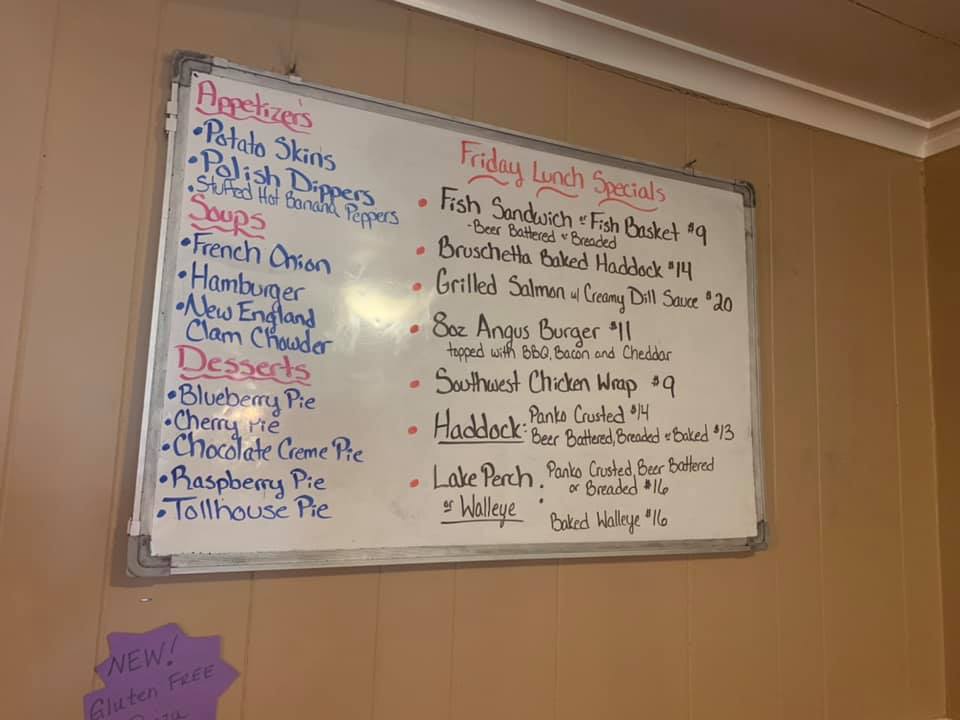 Appetizers
• Potato Skins
• Polish Dippers
• Stuffed Hot Banana Peppers
Soups
• French Onion
• Hamburger
• New England
Clam Chowder
Desserts
• Blueberry Pie
• Cherry Pie
• Chocolate Creme Pie
• Raspberry Pie
• Tollhouse Pie
Friday Lunch Specials
• Fish Sandwich or Fish Basket $9
- Beer Battered or Breaded
• Bruschetta Baked Haddock $14
• Grilled Salmon w/ Creamy Dill Sauce $20
• 8oz Angus Burger $11
topped with BBQ, Bacon and Cheddar
• Southwest Chicken Wrap $9
• Haddock: Panko Crusted $14
Beer Battered, Breaded or Baked $13
• Lake Perch : Panko Crusted, Beer Battered
or Walleye or Breaded $16
Baked Walleye $16
NEW!
Gluten FREE
Pizza